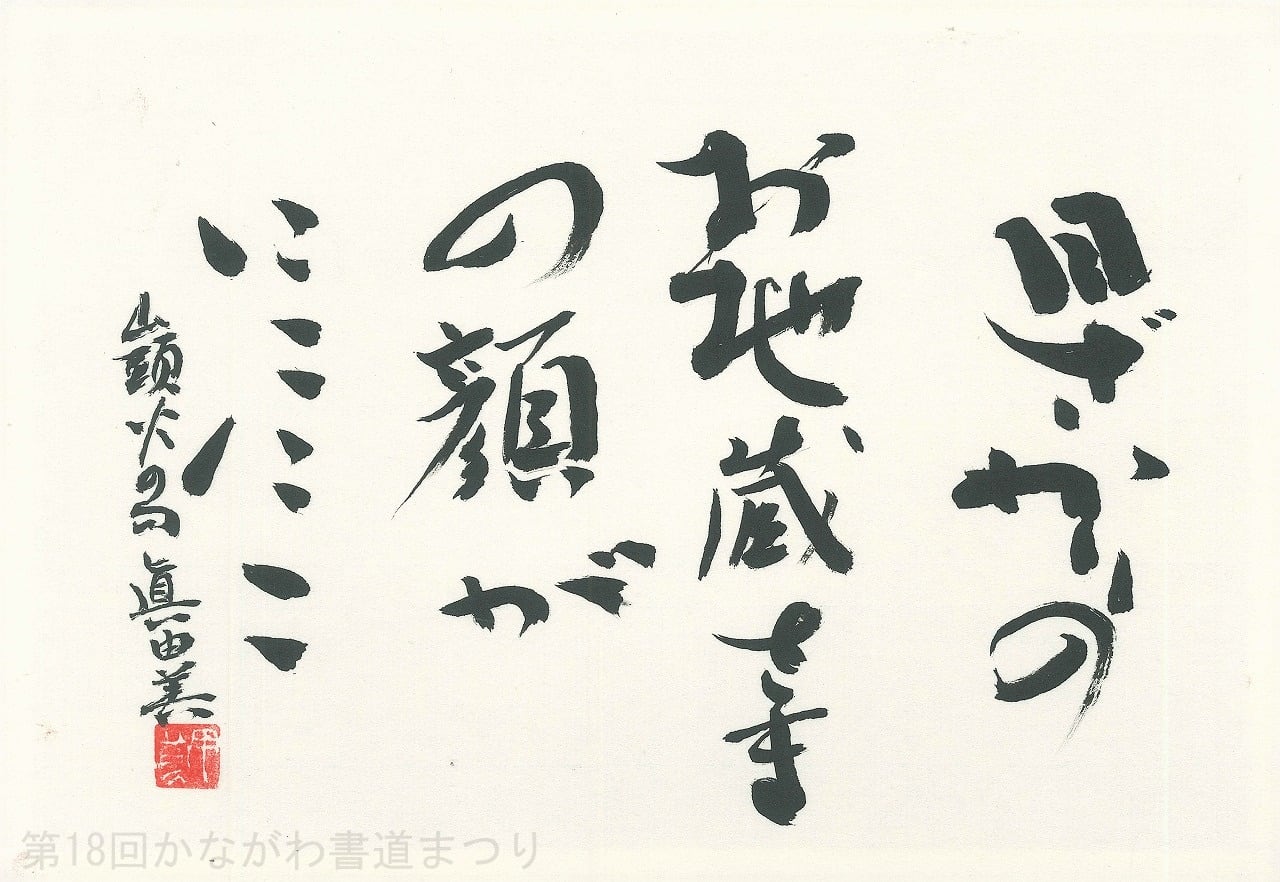 日ざかりの
お地蔵さま
の顔が
にこにこ
山頭火の句 眞由美
第18回かながわ書道まつり